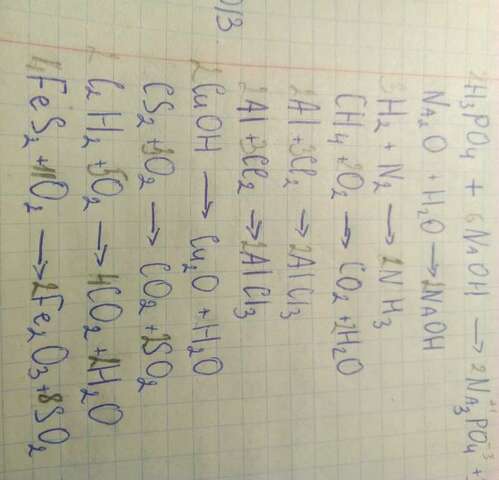 2H₃PO₄ + 6NaOH → 2Na₃PO₄ +
Na₂O + H₂O → 2NaOH
3H₂ + N₂ → 2NH₃
CH₄ + 2O₂ → CO₂ + 2H₂O
2Al + 3Cl₂ → 2AlCl₃
2Al + 3Cl₂ → 2AlCl₃
2CuOH → Cu₂O + H₂O
CS₂ + 3O₂ → CO₂ + 2SO₂
2C₂H₂ + 5O₂ → 4CO₂ + 2H₂O
4FeS₂ + 11O₂ → 2Fe₂O₃ + 8SO₂